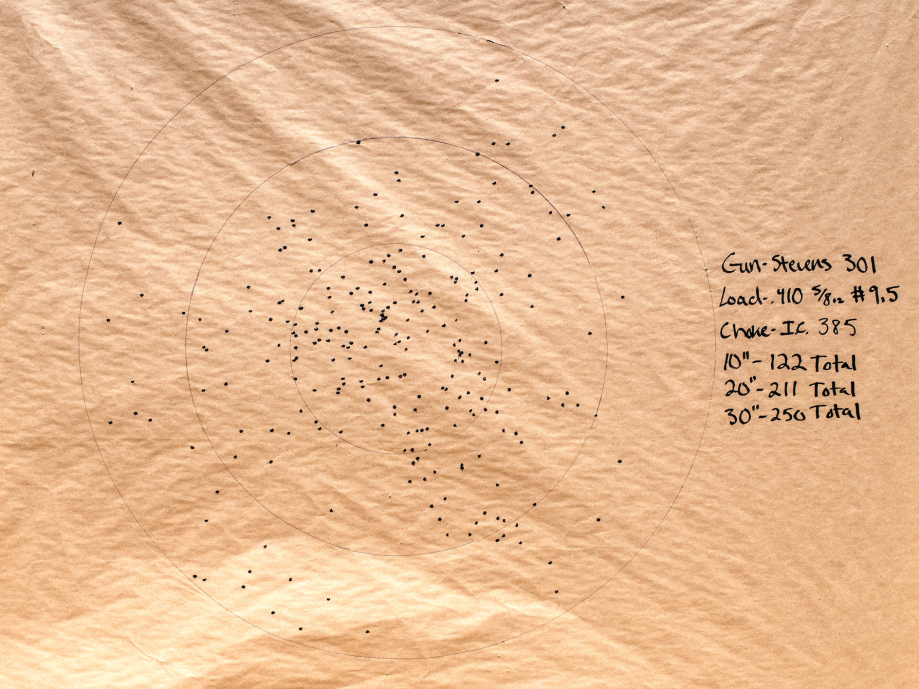 Gun-Stevens 301
Load-.410 5/8oz #9.5
Choke-I.C. 385
10"-122 Total
20"-211 Total
30"-250 Total